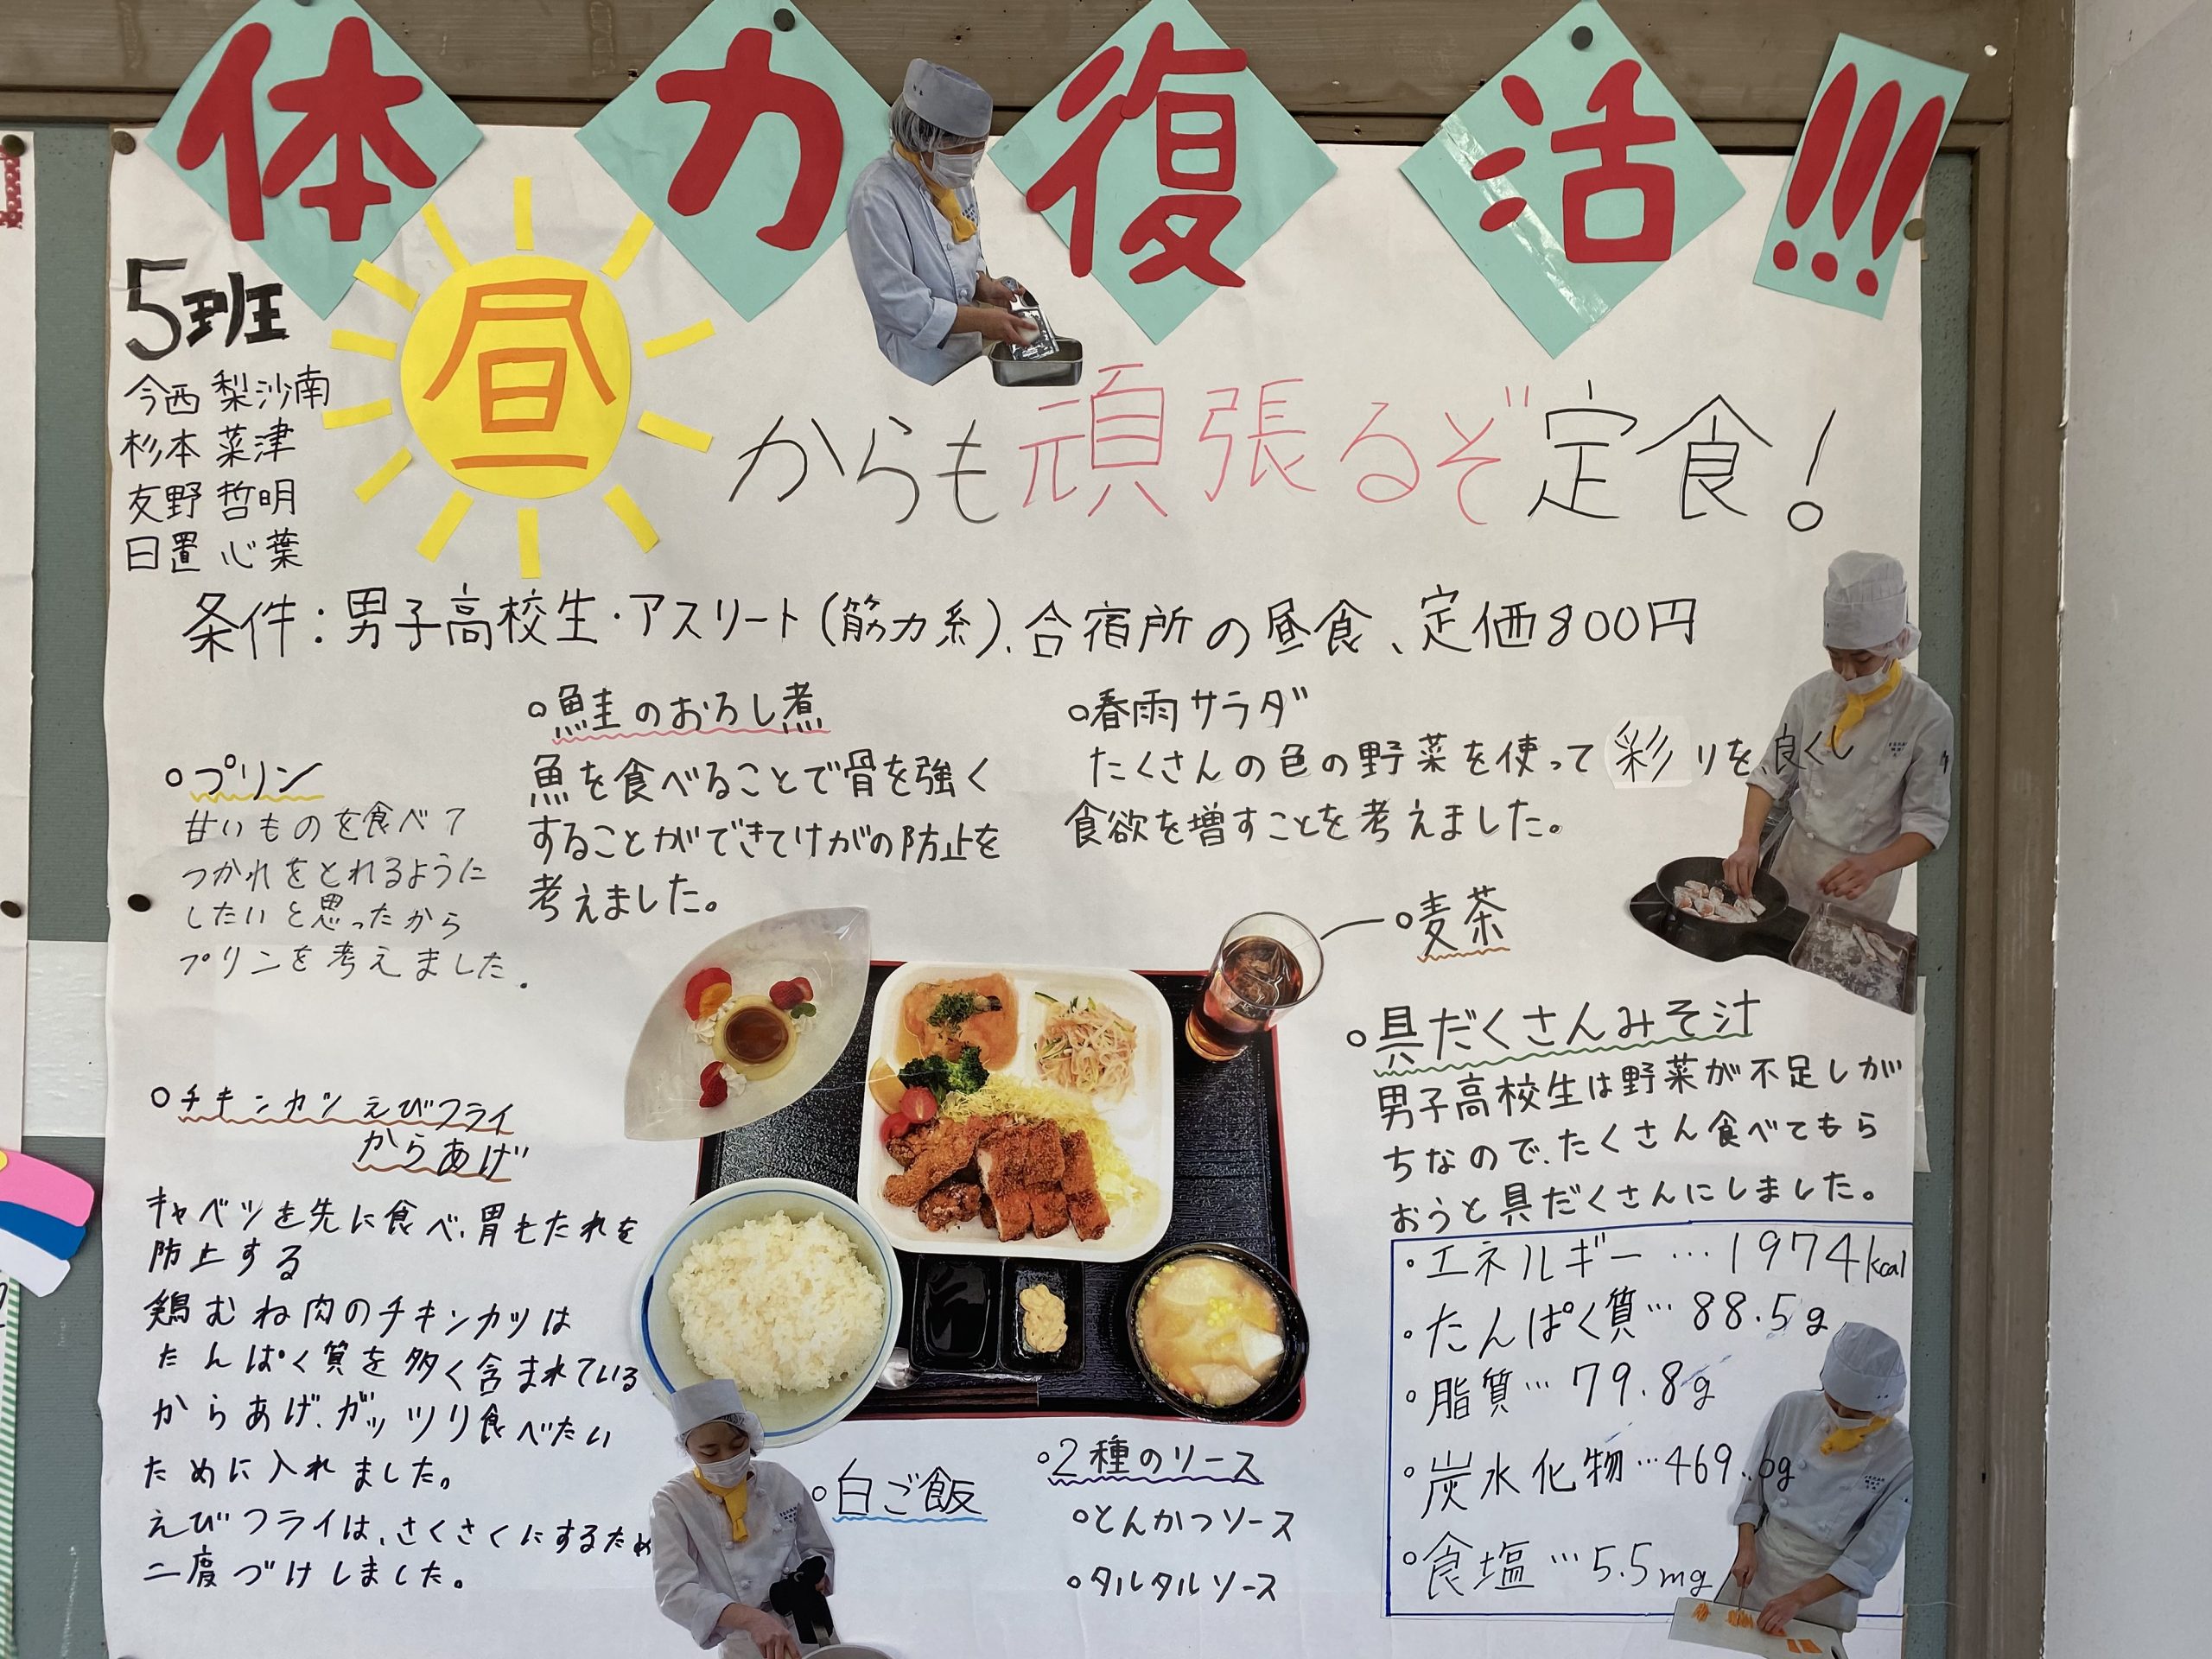 体力復活!!!
5班
今西 梨沙南
杉本 菜津
友野 哲明
日置 心葉
昼からも頑張るぞ定食!
条件:男子高校生・アスリート(筋力系)、合宿所の昼食、定価800円
○プリン
甘いものを食べて
つかれをとれるように
したいと思ったから
プリンを考えました.
○鮭のおろし煮
魚を食べることで骨を強く
することができてけがの防止を
考えました。
○春雨サラダ
たくさんの色の野菜を使って彩りを良くし
食欲を増すことを考えました。
○麦茶
○具だくさんみそ汁
男子高校生は野菜が不足しが
ちなので、たくさん食べてもら
おうと具だくさんにしました。
○チキンカツ えびフライ
からあげ
キャベツを先に食べ、胃もたれを
防止する
鶏むね肉のチキンカツは
たんぱく質を多く含まれている
からあげ、ガッツリ食べたい
ために入れました。
えびフライは、さくさくにするため
二度づけしました。
○白ご飯
○2種のソース
○とんかつソース
○タルタルソース
・エネルギー…1974kcal
・たんぱく質…88.5g
・脂質…79.8g
・炭水化物…469.6g
・食塩…5.5mg